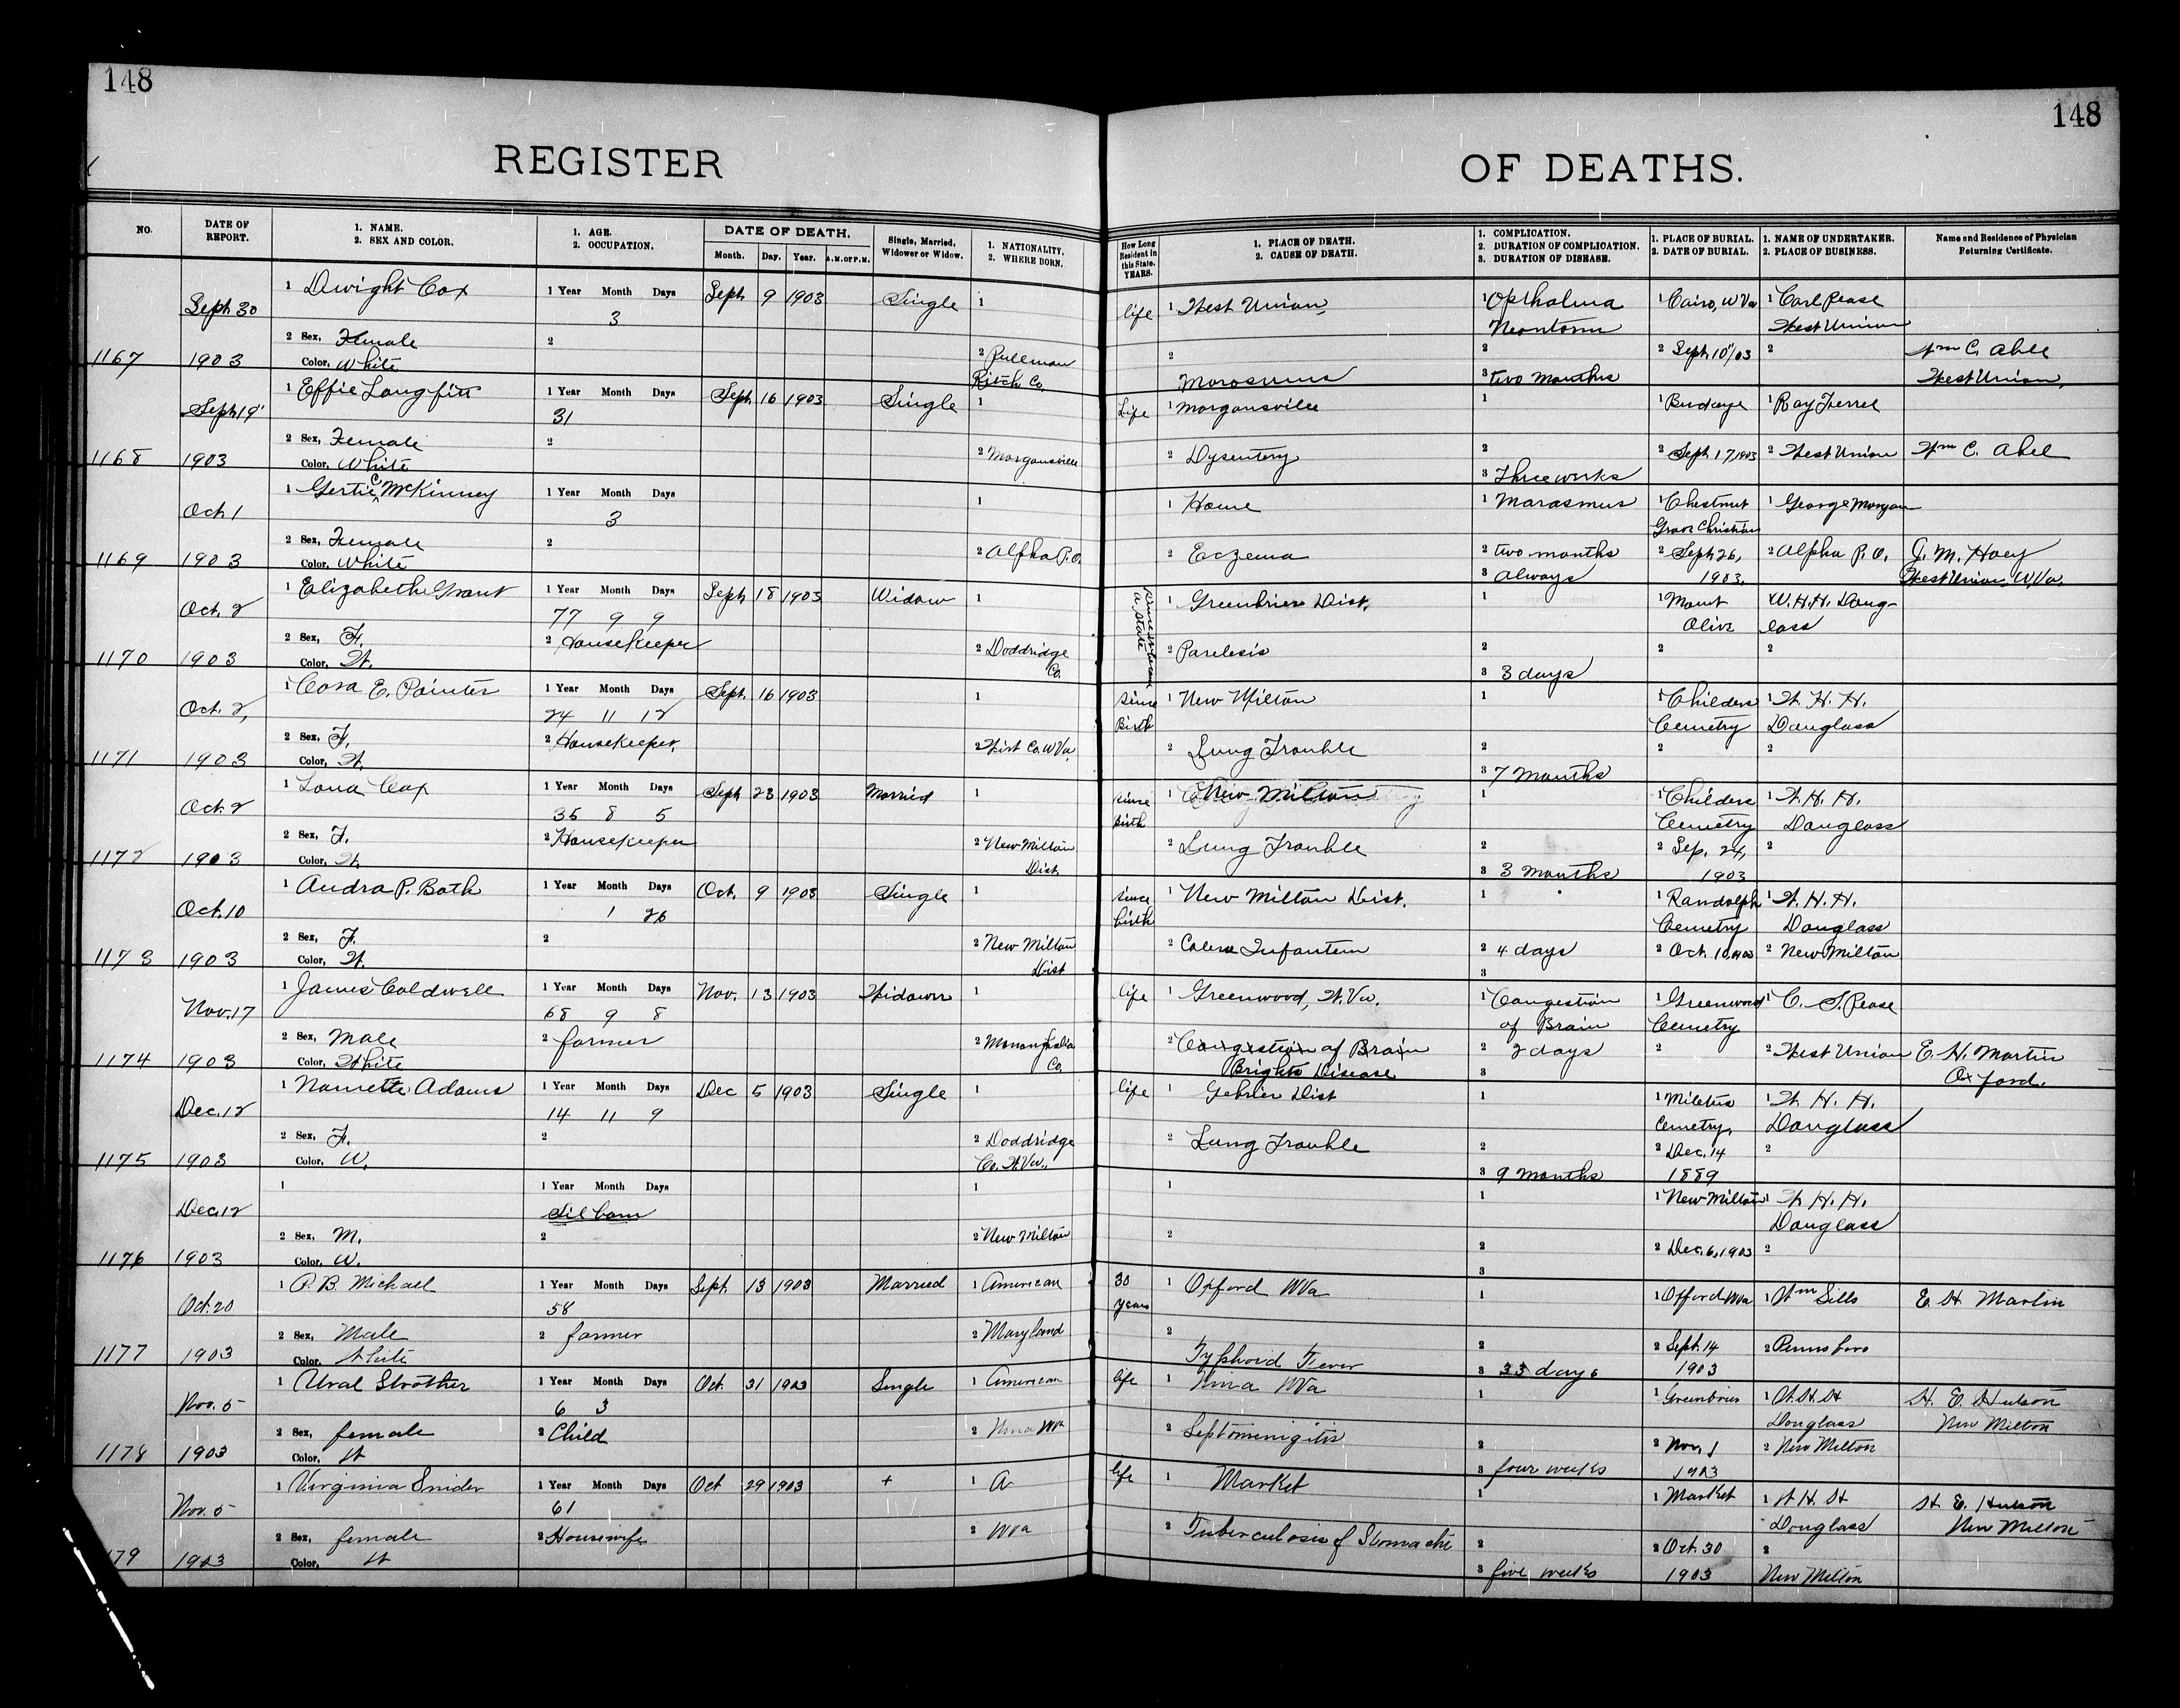 148
148
REGISTER
OF DEATHS.
NO.
DATE OF REPORT.
1. NAME.
2. SEX AND COLOR.
1. AGE.
2. OCCUPATION.
DATE OF DEATH.
Month. Day. Year. A.M. or P.M.
Single, Married, Widower or Widow.
1. NATIONALITY.
2. WHERE BORN.
How Long Resident in this State. YEARS.
1. PLACE OF DEATH.
2. CAUSE OF DEATH.
1. COMPLICATION.
2. DURATION OF COMPLICATION.
3. DURATION OF DISEASE.
1. PLACE OF BURIAL.
2. DATE OF BURIAL.
1. NAME OF UNDERTAKER.
2. PLACE OF BUSINESS.
Name and Residence of Physician Returning Certificate.
Sept 30 1 Dwight Cox 1 Year Month Days 3 Sept 9 1903 Single 1 life 1 West Union, 1 Opthalma 1 Cairo, W Va 1 Carl Pease
West Union
1167 1903 2 Sex, Female Color, White 2 2 Pullman Ritch Co. 2 Marasmus 2 3 two months 2 Sept. 10"/03 2 Wm C. Able West Union,
Sept 19" 1 Effie Longfitt 1 Year Month Days 31 Sept 16 1903 Single 1 Life 1 Morgansville 1 1 Buckeye 1 Ray Ferrel
1168 1903 2 Sex, Female Color, White 2 2 Morgansville 2 Dysentery 2 3 Three weeks 2 Sept. 17, 1903 2 West Union Wm C. Abel
Oct 1 1 Gertie C McKinney 1 Year Month Days 3 1 1 Home 1 Marasmus 1 Chestnut Grove Christian 1 George Morgan
1169 1903 2 Sex, Female Color, White 2 2 Alpha P.O. 2 Eczema 2 two months 3 always 2 Sept 26, 1903. 2 Alpha P.O. J. M. Hoey West Union W.Va.
Oct. 2 1 Elizabeth Grant 1 Year Month Days 77 9 9 Sept 18 1903 Widow 1 1 Greenbrier Dist. 1 1 Mount Olive W. H. H. Douglass
1170 1903 2 Sex, F. Color, W. 2 Housekeeper 2 Doddridge Co. 2 Parelesis 2 3 3 days 2 2
Oct. 2, 1 Cora E. Painter 1 Year Month Days 24 11 12 Sept. 16 1903 1 Since Birth 1 New Milton 1 1 Childers Cemetry 1 W. H. H. Douglass
1171 1903 2 Sex, F. Color, W. 2 Housekeeper. 2 Co. W Va. 2 Lung Trouble 2 3 7 Months 2 2
Oct. 2 1 Lona Cox 1 Year Month Days 35 8 5 Sept 23 1903 Married 1 since birth 1 New Milton 1 1 Childers Cemetry 1 W. H. H. Douglass
1172 1903 2 Sex, F. Color, W. 2 Housekeeper 2 New Milton Dist. 2 Lung Trouble 2 3 3 months 2 Sep. 24, 1903 2
Oct. 10 1 Audra P. Bath 1 Year Month Days 1 26 Oct. 9 1903 Single 1 since birth 1 New Milton Dist. 1 1 Randolph Cemetry 1 W. H. H. Douglass
1173 1903 2 Sex, F. Color, W. 2 2 New Milton Dist 2 Colera Infantem 2 4 days 3 2 Oct. 10, 1903 2 New Milton
Nov. 17 1 James Coldwell 1 Year Month Days 68 9 8 Nov. 13 1903 Widower 1 life 1 Greenwood, W. Va. 1 Congestion of Brain 1 Greenwood Cemetry 1 C. S. Pease
1174 1903 2 Sex, Male Color, White 2 farmer 2 Monongalia Co. 2 Congestion of Brain Brights Disease 2 2 days 3 2 2 West Union E. H. Martin Oxford.
Dec. 12 1 Namette Adams 1 Year Month Days 14 11 9 Dec 5 1903 Single 1 life 1 Dist 1 1 Miletus Cemetry, 1 W. H. H. Douglass
1175 1903 2 Sex, F. Color, W. 2 2 Doddridge Co. W. Va., 2 Lung Trouble 2 3 9 months 2 Dec. 14 1889 2
Dec. 12 1 1 Year Month Days Stilborn 1 1 1 1 New Milton 1 W. H. H. Douglass
1176 1903 2 Sex, M. Color, W. 2 2 New Milton 2 2 3 2 Dec. 6, 1903 2
Oct. 20 1 P. B. Michael 1 Year Month Days 58 Sept. 13 1903 Married 1 American 30 years 1 Oxford WVa 1 1 Oxford WVa 1 Wm Sills E. H Martin
1177 1903 2 Sex, Male Color, White 2 farmer 2 Maryland 2 Typhoid Fever 2 3 33 days 2 Sept. 14 1903 2 Pennsboro
Nov. 5 1 Ural Strother 1 Year Month Days 6 3 Oct. 31 1903 Single 1 American life 1 Nina WVa 1 1 Greenbrier 1 W. H. H Douglass H. E. Hutson New Milton
1178 1903 2 Sex, female Color, W 2 Child 2 Nina WVa 2 Leptominigitis 2 3 four weeks 2 Nov. 1 1903 2 New Milton
Nov. 5 1 Virginia Snider 1 Year Month Days 61 Oct 29 1903 + 1 A life 1 Market 1 1 Market 1 W. H. H Douglass H. E. Hutson New Milton
179 1903 2 Sex, female Color, W 2 Housewife 2 WVa 2 Tuberculosis of Stomache 2 3 five weeks 2 Oct. 30 1903 2 New Milton